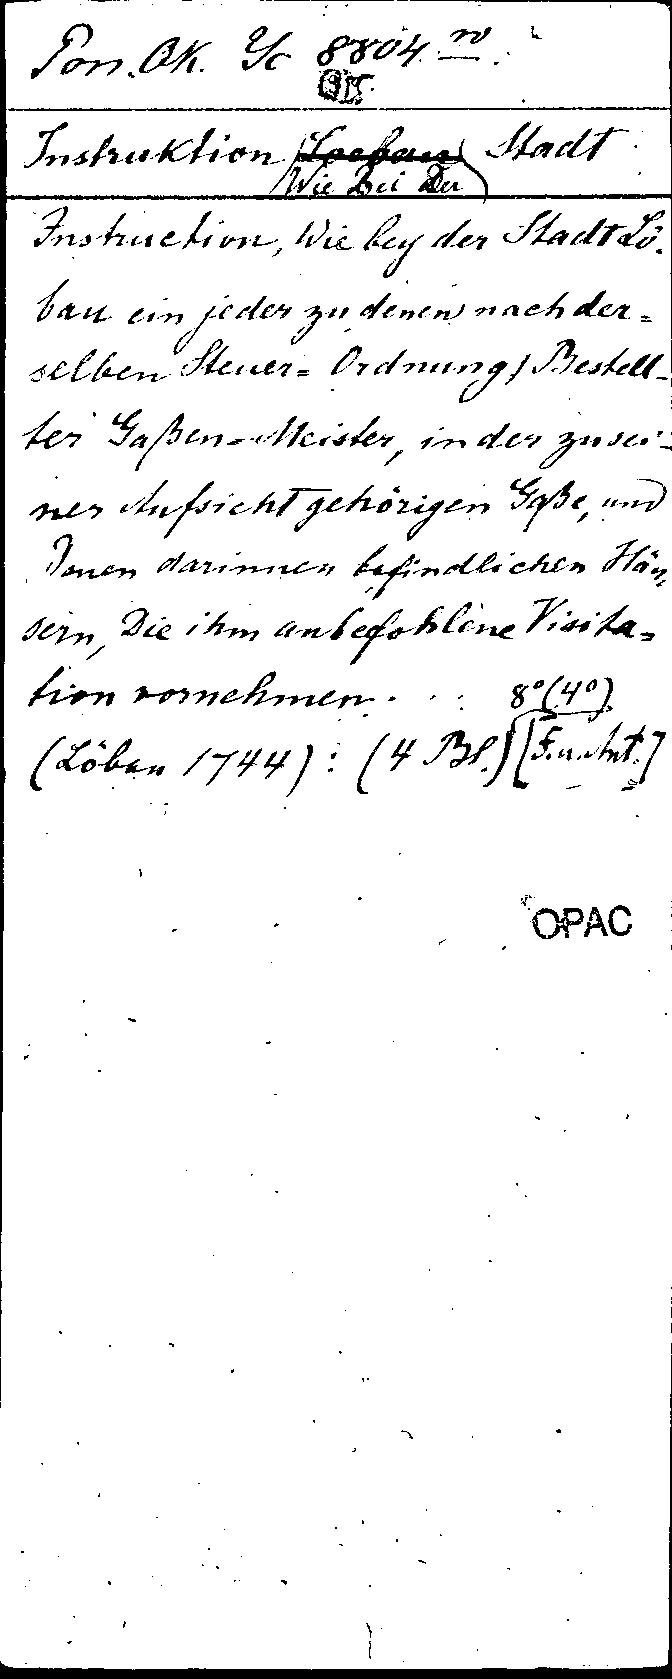 Pon. QK. Yc 8804 n°
Instruktion (Loebau) Stadt
Wie Bei Der
Instruction, Wie bey der Stadt Lö-
bau ein jeder zu denen nach der=
selben Steuer= Ordnung) Bestell-
ter Gaßen-Meister, in der zu sei-
ner Aufsicht gehörigen Gaße, und
Denen darinnen befindlichen Häu-
sern, Die ihm anbefohlene Visita=
tion vornehmen. 8° (4°)
(Löbau 1744): (4 Bl.) [F. u. Ant.]
OPAC